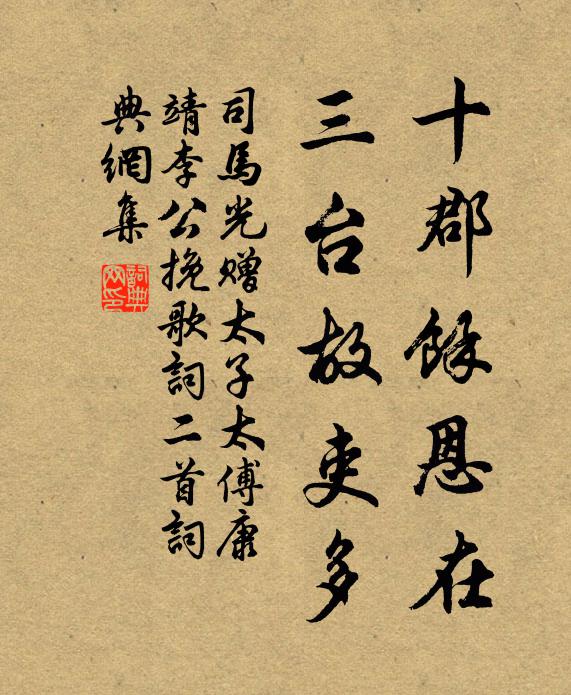 十郡餘恩在
三台故吏多
司馬光贈太子太傅康
靖李公挽歌詞二首詞
典網集
詞典網印